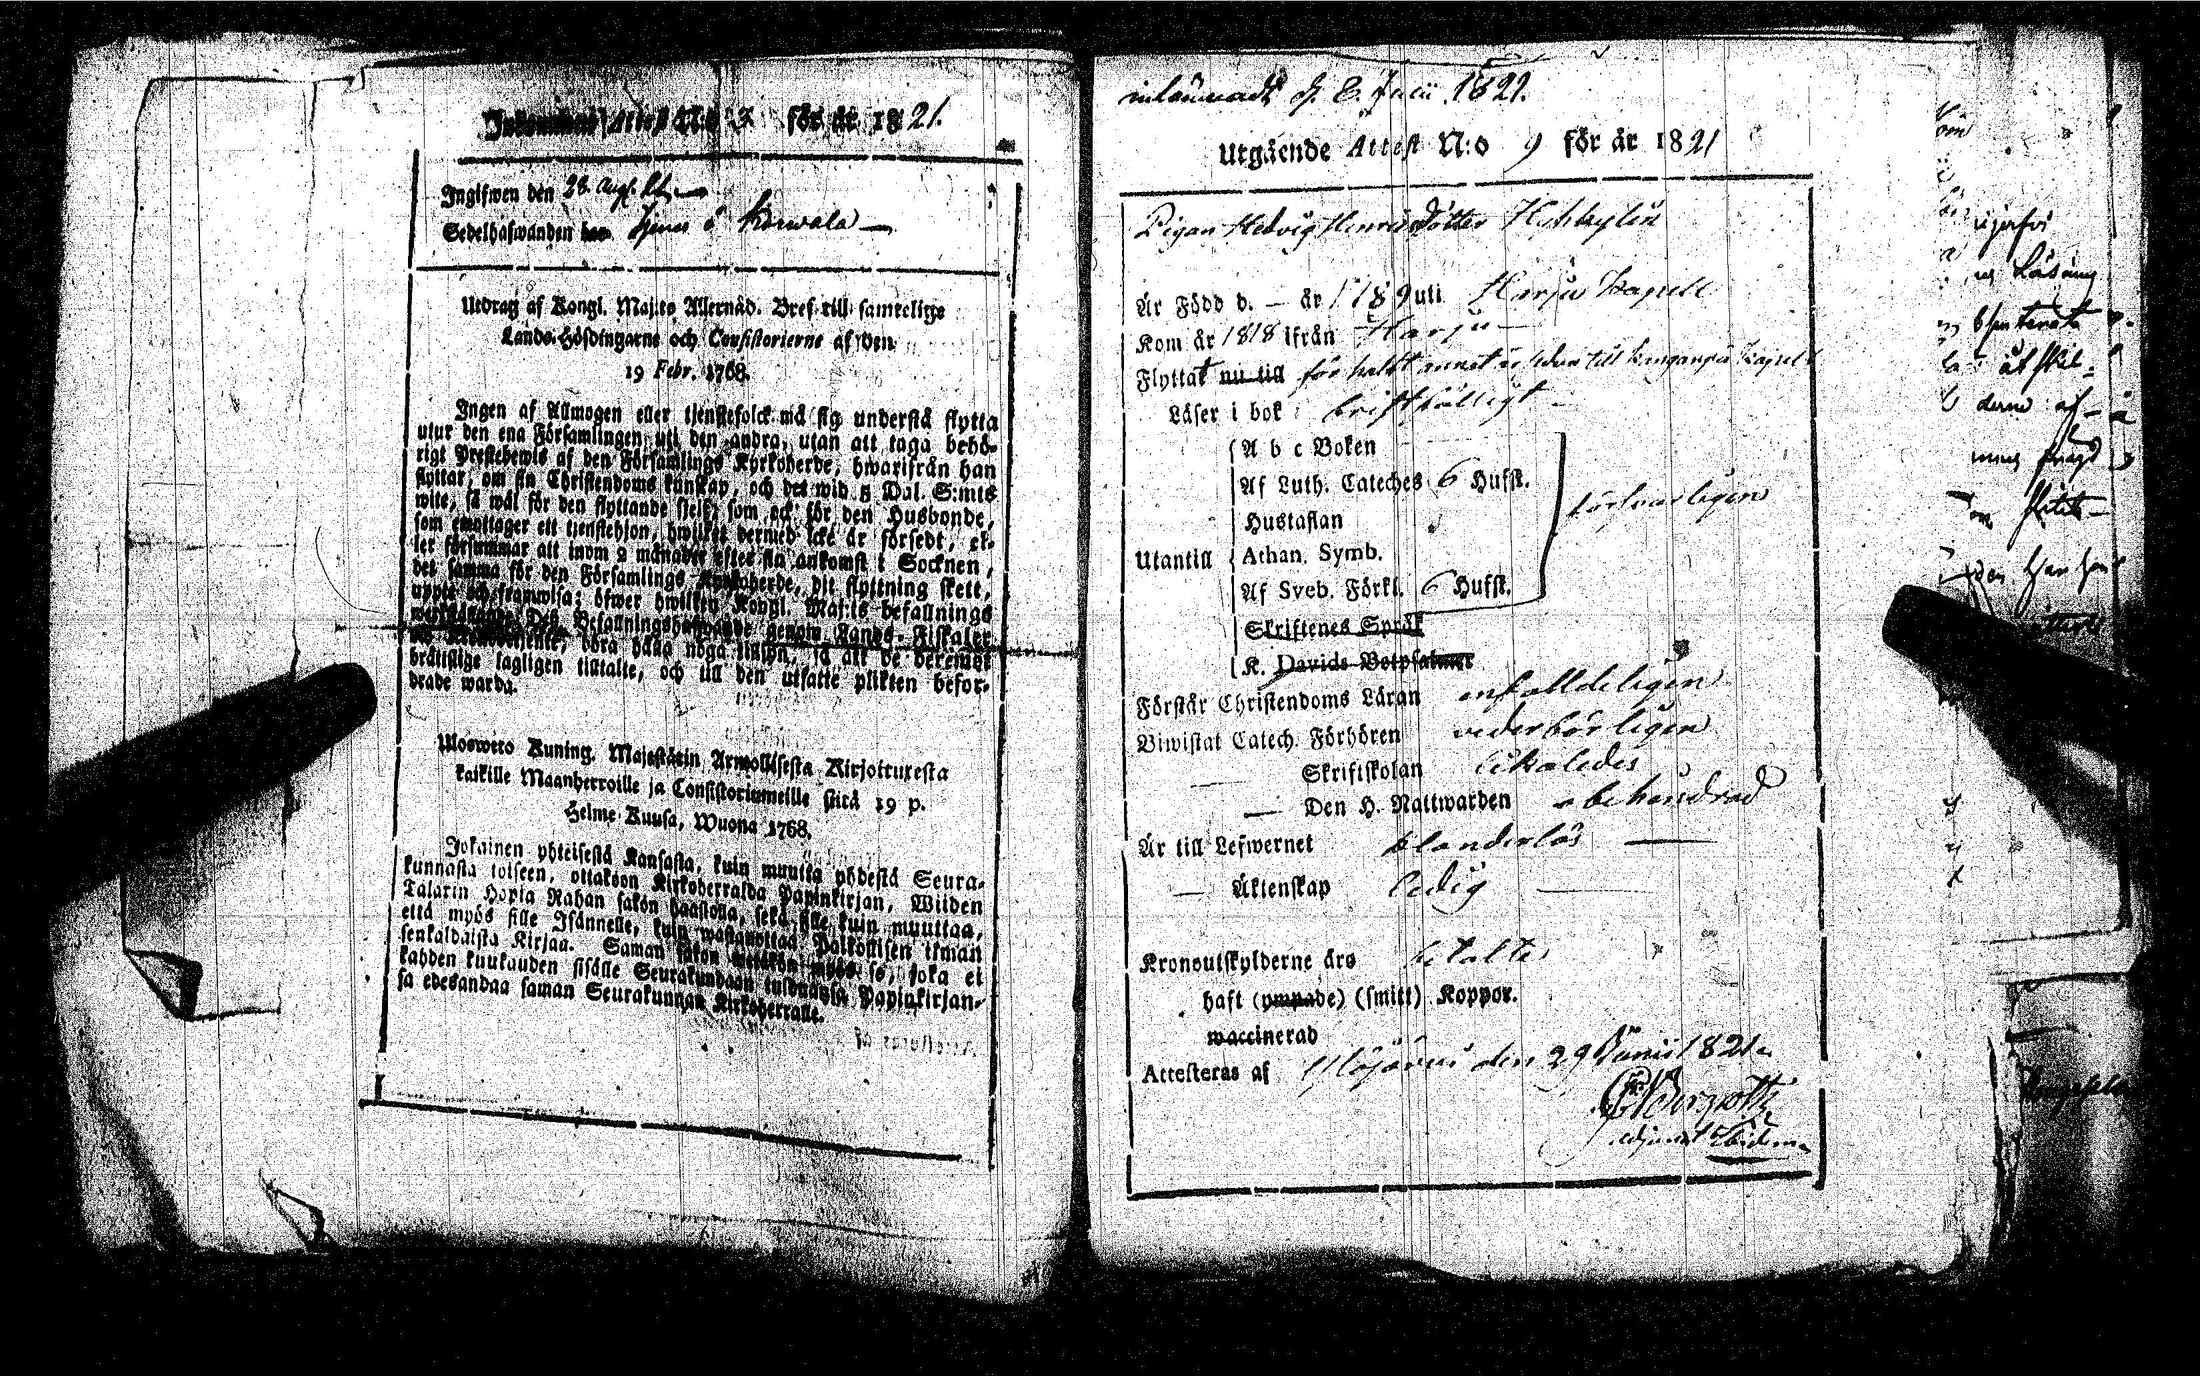 Inkommen Attest N:o 3 för år 1821.
Ingifwen den 28 Aug. 21
Sedelhafwanden tjenar å Korwala
Utdrag af Kongl. Maj:ts Allernåd. Bref till samtelige
Lands-Höfdingarne och Consistorierne af den
19 Febr. 1768.
Ingen af Allmogen eller tjenstefolck må sig understå flytta
utur den ena Församlingen uti den andra, utan att taga behö-
rigt Prestebewis af den Församlings Kyrkoherde, hwarifrån han
flyttar, om sin Christendoms kunskap, och det wid 5 Dal. S:mts
wite, så wäl för den flyttande sjelf, som ock för den Husbonde,
som emottager ett tjenstehjon, hwilket dermed icke är försedt, el-
ler försummar att inom 2 månader efter sin ankomst i Socknen,
det samma för den Församlings Kyrkoherde, dit flyttning skett,
uppte och framwisa; öfwer hwilken Kongl. Maj:ts befallnings
werkställande Des Befallningshafwande genom Lands-Fiskaler
och Kronobetjente, böra hålla noga inseende, så att de deremot
brättslige lagligen tilltalte, och till den utsatte plikten befor-
drade warda.
Uloswето Kuning. Majestätin Armollisesta Kirjoituxesta
kaikille Maanherroille ja Consistoriumeille siitä 19 p.
Helme-Kuusa, Wuona 1768.
Jokainen yhteisestä Kansasta, kuin muutta yhdestä Seura-
kunnasta toiseen, ottakoon Kirkoherralda Papinkirjan, Wiiden
Talarin Hopia Rahan sakon haastolla, sekä sille kuin muuttaa,
että myös sille Isännelle, kuin wastanottaa Palkollisen ilman
senkaldaista Kirjaa. Saman sakon wetäkön myös se, joka ei
kahden kuukauden sisälle Seurakundaan tulduansa Papinkirjan-
sa edesandaa saman Seurakunnan Kirkoherralle.
inlämnadt d. 8 Julii 1821.
Utgående Attest N:o 9 för år 1821
Pigan Hedvig Henricsdotter
Är Född d. — år 1789 uti Harju Kapell
Kom år 1818 ifrån Harju
Flyttat nu till för halft annat år sedan till Kangasala Kapell
Läser i bok bristfälligt
A b c Boken
Af Luth. Cateches 6 Hufst.
Hustaflan
försvarligen
Utantill Athan. Symb.
Af Sveb. Förkl. 6 Hufst.
Skriftenes Språk
K. Davids Botpsalmer
Förstår Christendoms Läran enfalldeligen
Biwistat Catech. Förhören vederbörligen
Skriftskolan likaledes
— Den H. Nattwarden obehindrad
Är till Lefwernet klanderlös
— Äktenskap ledig
Kronoutskylderne äro betalte
haft (ympade) (smitt) Koppor.
waccinerad
Attesteras af Ylöjärvi den 29 Junii 1821.
adjunct ibidem